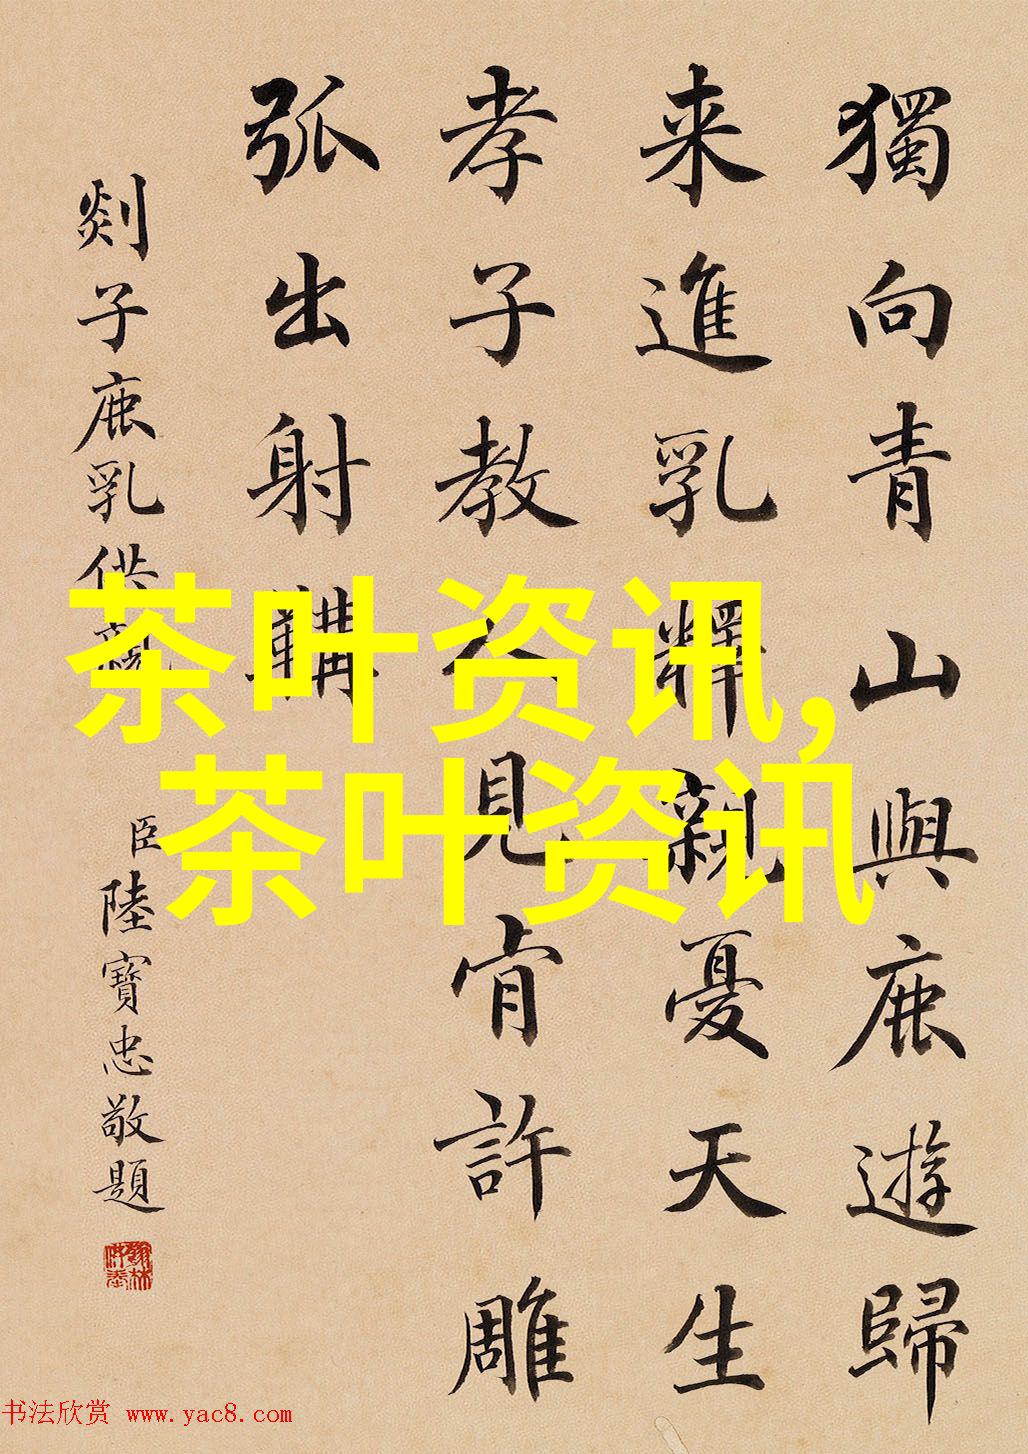 獨向青山與鹿遊歸
来進乳釋親憂天生
孝子教人見肯許雕
弧出射鞲
剡子鹿乳供親
臣陸寶忠敬題
茶叶资讯,
茶叶资讯
书法欣赏 www.yac8.com